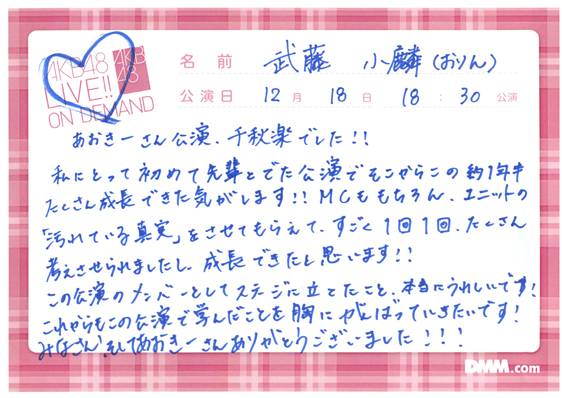 AKB48
LIVE!!
ON DEMAND
AKB
48
名前 武藤 小麟(おりん)
公演日 12月 18日 18:30 公演
あおきーさん公演、千秋楽でした!!
私にとって初めて先輩とでた公演でそこからこの約1年半
たくさん成長できた気がします!!MCももちろん、ユニットの
「汚れている真実」をさせてもらえて、すごく1回1回、たくさん
考えさせられましたし、成長できたと思います!!
この公演のメンバーとしてステージに立てたこと、本当にうれしいです!
これからもこの公演で学んだことを胸にがんばっていきたいです!
みなさん!そしてあおきーさんありがとうございました!!!
DMM.com